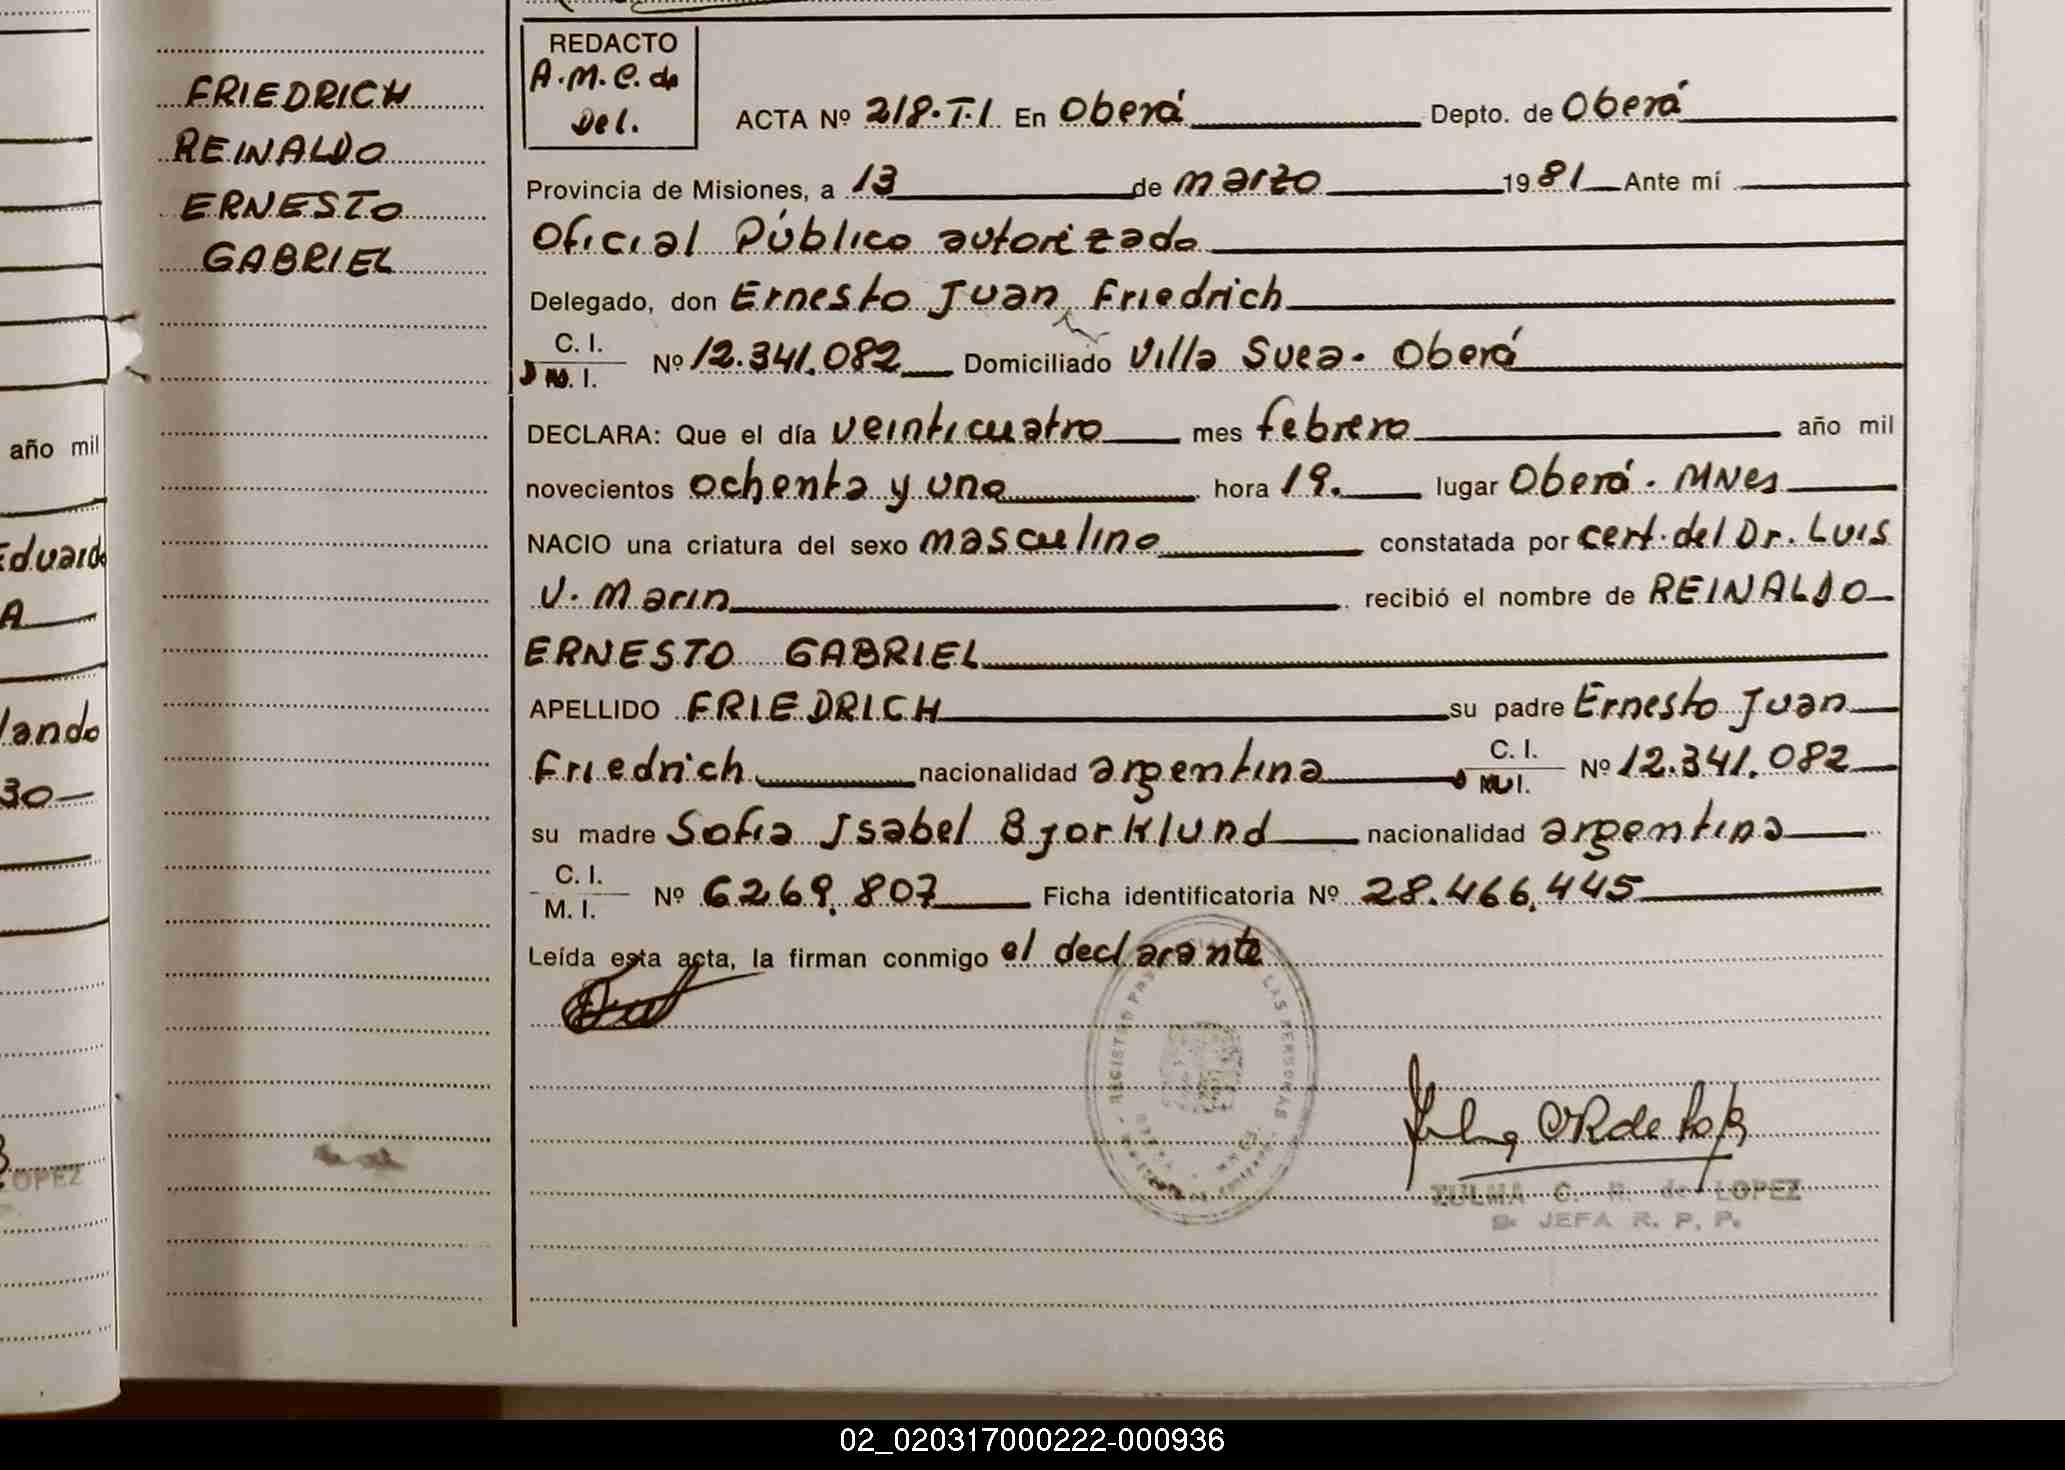 FRIEDRICH
REINALDO
ERNESTO
GABRIEL
año mil
Eduardo
A
lando
30
LOPEZ
REDACTO
A.M.C. de
Del.
ACTA Nº 218.T.I En Oberá Depto. de Oberá
Provincia de Misiones, a 13 de marzo 1981 Ante mí
Oficial Público autorizado
Delegado, don Ernesto Juan Friedrich
C. I.
M. I. Nº 12.341.082 Domiciliado Villa Svea. Oberá
DECLARA: Que el día veinticuatro mes febrero año mil
novecientos ochenta y uno hora 19. lugar Oberá. MNes
NACIO una criatura del sexo masculino constatada por cert. del Dr. Luis
V. Marin recibió el nombre de REINALDO
ERNESTO GABRIEL
APELLIDO FRIEDRICH su padre Ernesto Juan
Friedrich nacionalidad argentina C. I. Nº 12.341.082
su madre Sofia Isabel Bjorklund nacionalidad argentina
C. I.
M. I. Nº 6269.807 Ficha identificatoria Nº 28.466.445
Leída esta acta, la firman conmigo el declarante
REGISTRO LAS PERSONAS
ZULMA C. R. de LOPEZ
JEFA R. P. P.
02_020317000222-000936